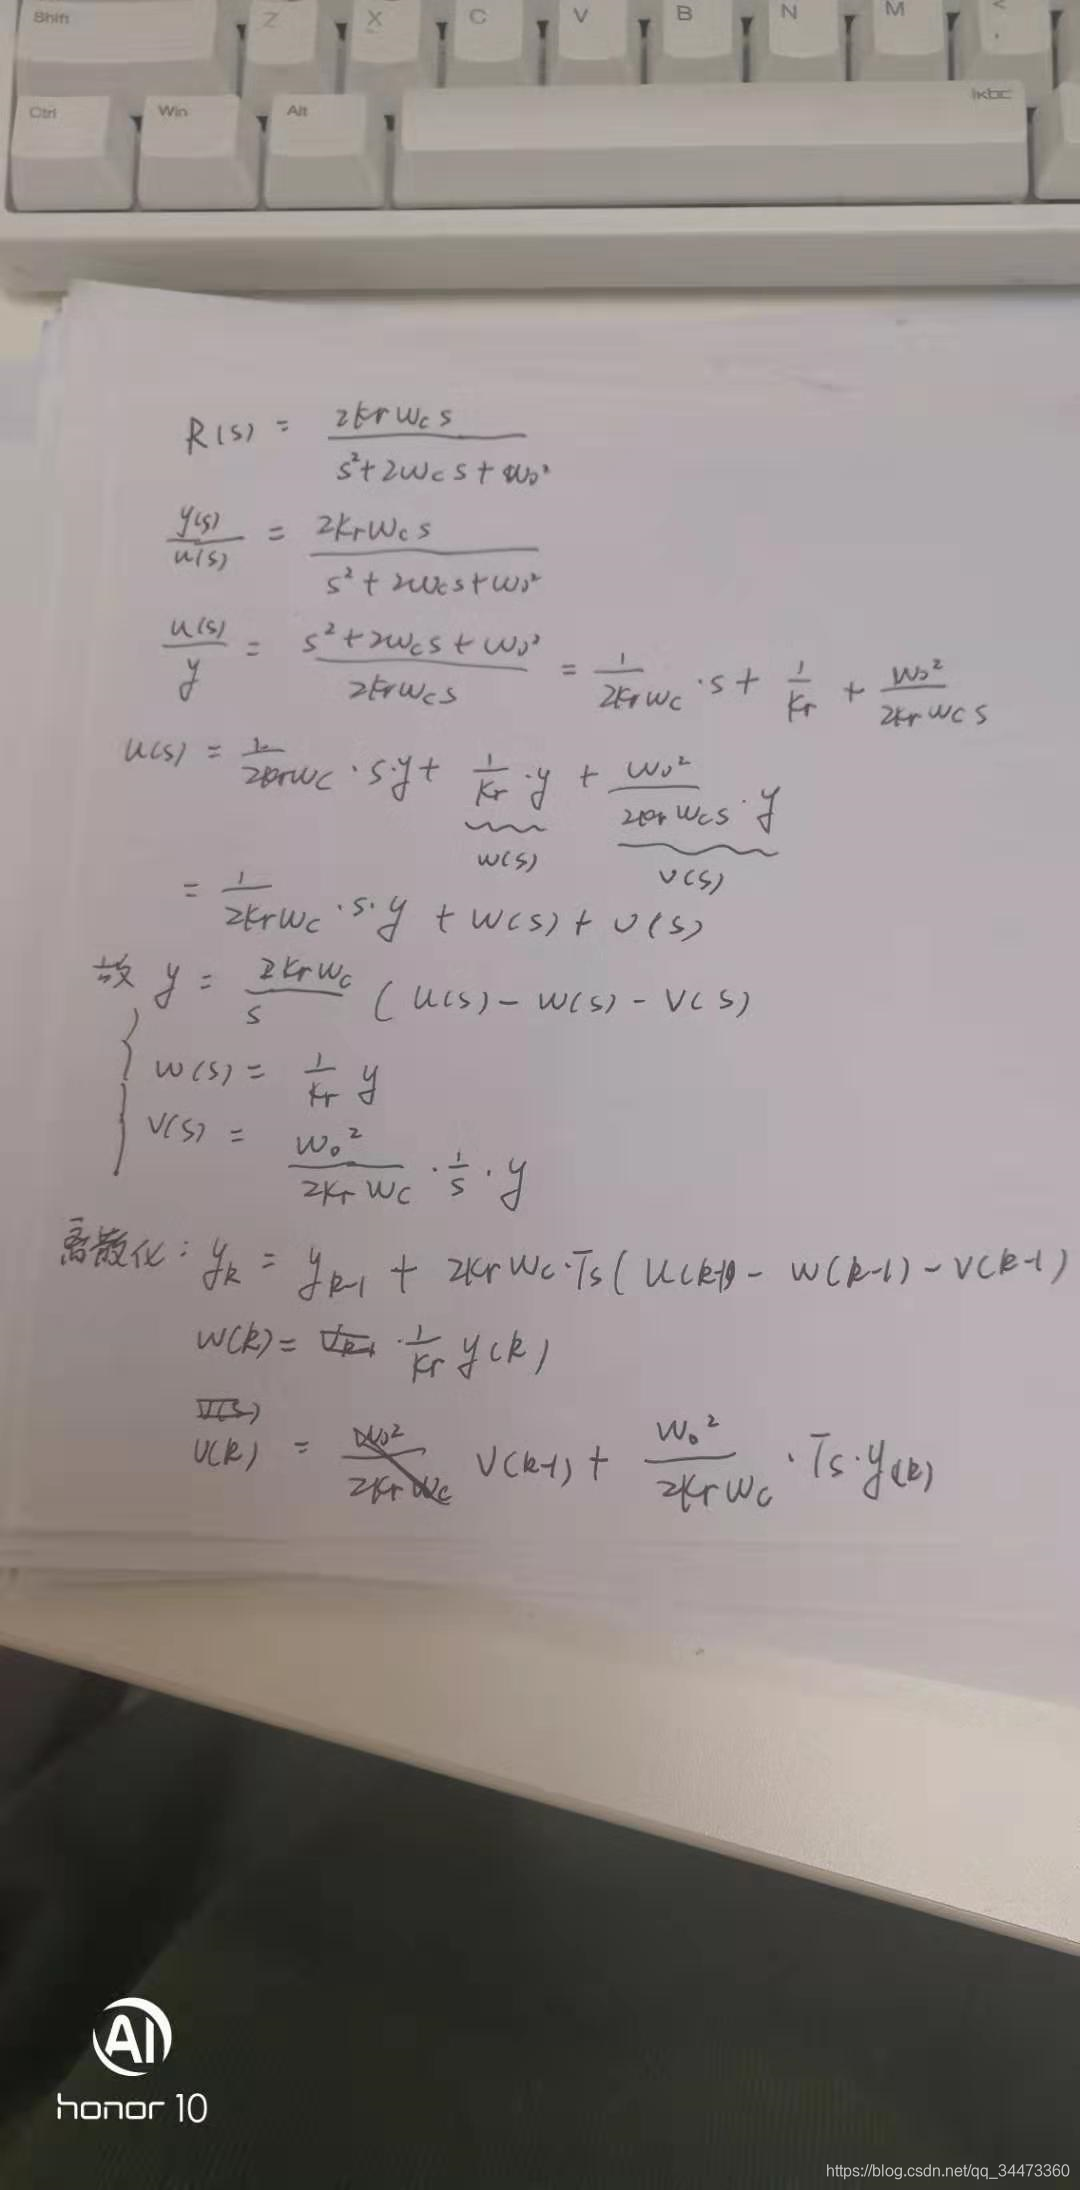 Shift Z X C V B N M <
,
Ctrl Win Alt ikbc
R(s) = 2krwcs / (s²+2wcs+w₀²)
y(s)/u(s) = 2krwcs / (s²+2wcs+w₀²)
u(s)/y = (s²+2wcs+w₀²) / 2krwcs = 1/(2krwc) ·s + 1/kr + w₀²/(2krwcs)
u(s) = 1/(2krwc) ·s·y + 1/kr ·y + w₀²/(2krwcs) ·y
w(s) v(s)
= 1/(2krwc) ·s·y + w(s) + v(s)
故 y = 2krwc/s (u(s) - w(s) - v(s)
w(s) = 1/kr y
v(s) = w₀²/(2krwc) · 1/s · y
离散化: yₖ = yₖ₋₁ + 2krwc·Ts(u(k-1) - w(k-1) - v(k-1)
w(k) = · 1/kr y(k)
v(k) = v(k-1) + w₀²/(2krwc) ·Ts·y(k)
AI
honor 10
https://blog.csdn.net/qq_34473360